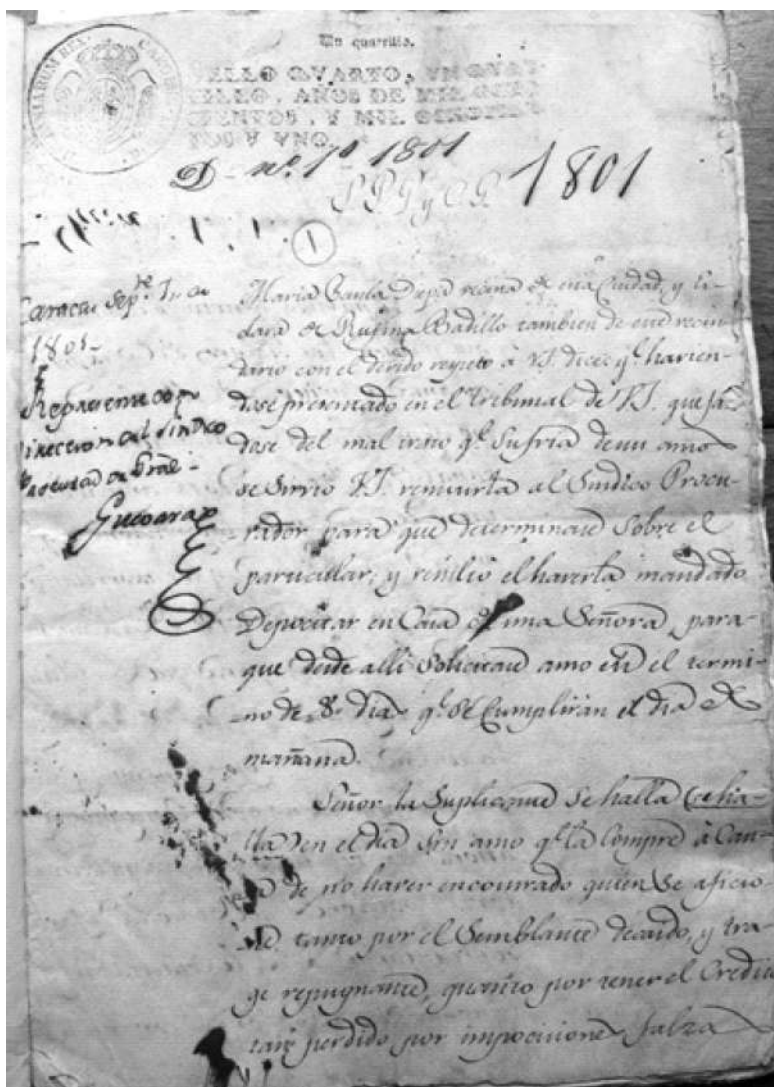 Un quartillo.
SELLO QVARTO, VN QVAR-
TILLO, AÑOS DE MIL OCHO-
CIENTOS, Y MIL OCHOCIEN-
TOS Y VNO.
D nº. 10 1801
1801
1
Caracas Sepre. 7,, de
1801-
Represente con
direccion del Sindico
Procurador Gral-
Guevara
Maria Paula Depa vecina de esta Ciudad, y es-
clava de Rufina Badillo tambien de este vecin-
dario con el devido respeto à VS. dice: qe. havien-
dose presentado en el tribunal de VS. quejan-
dose del mal trato qe. Sufria de su amo
se Sirvio VS. remitirla al Sindico Procu-
rador para que determinase Sobre el
particular; y resultó el haverla mandado
Depocitar en Casa de una Señora, para
que desde alli Solicitase amo en el termi-
no de 8. dias qe. Se Cumplirán el dia de
mañana.
Señor la Suplicante Se halla
en el dia sin amo qe. la Compre à Cau-
sa de no haver encontrado quien Se aficio-
ne, tanto por el Semblante decaido, y tra-
ge repugnante, quanto por tener el Credito
tan perdido por imposiciones falzas